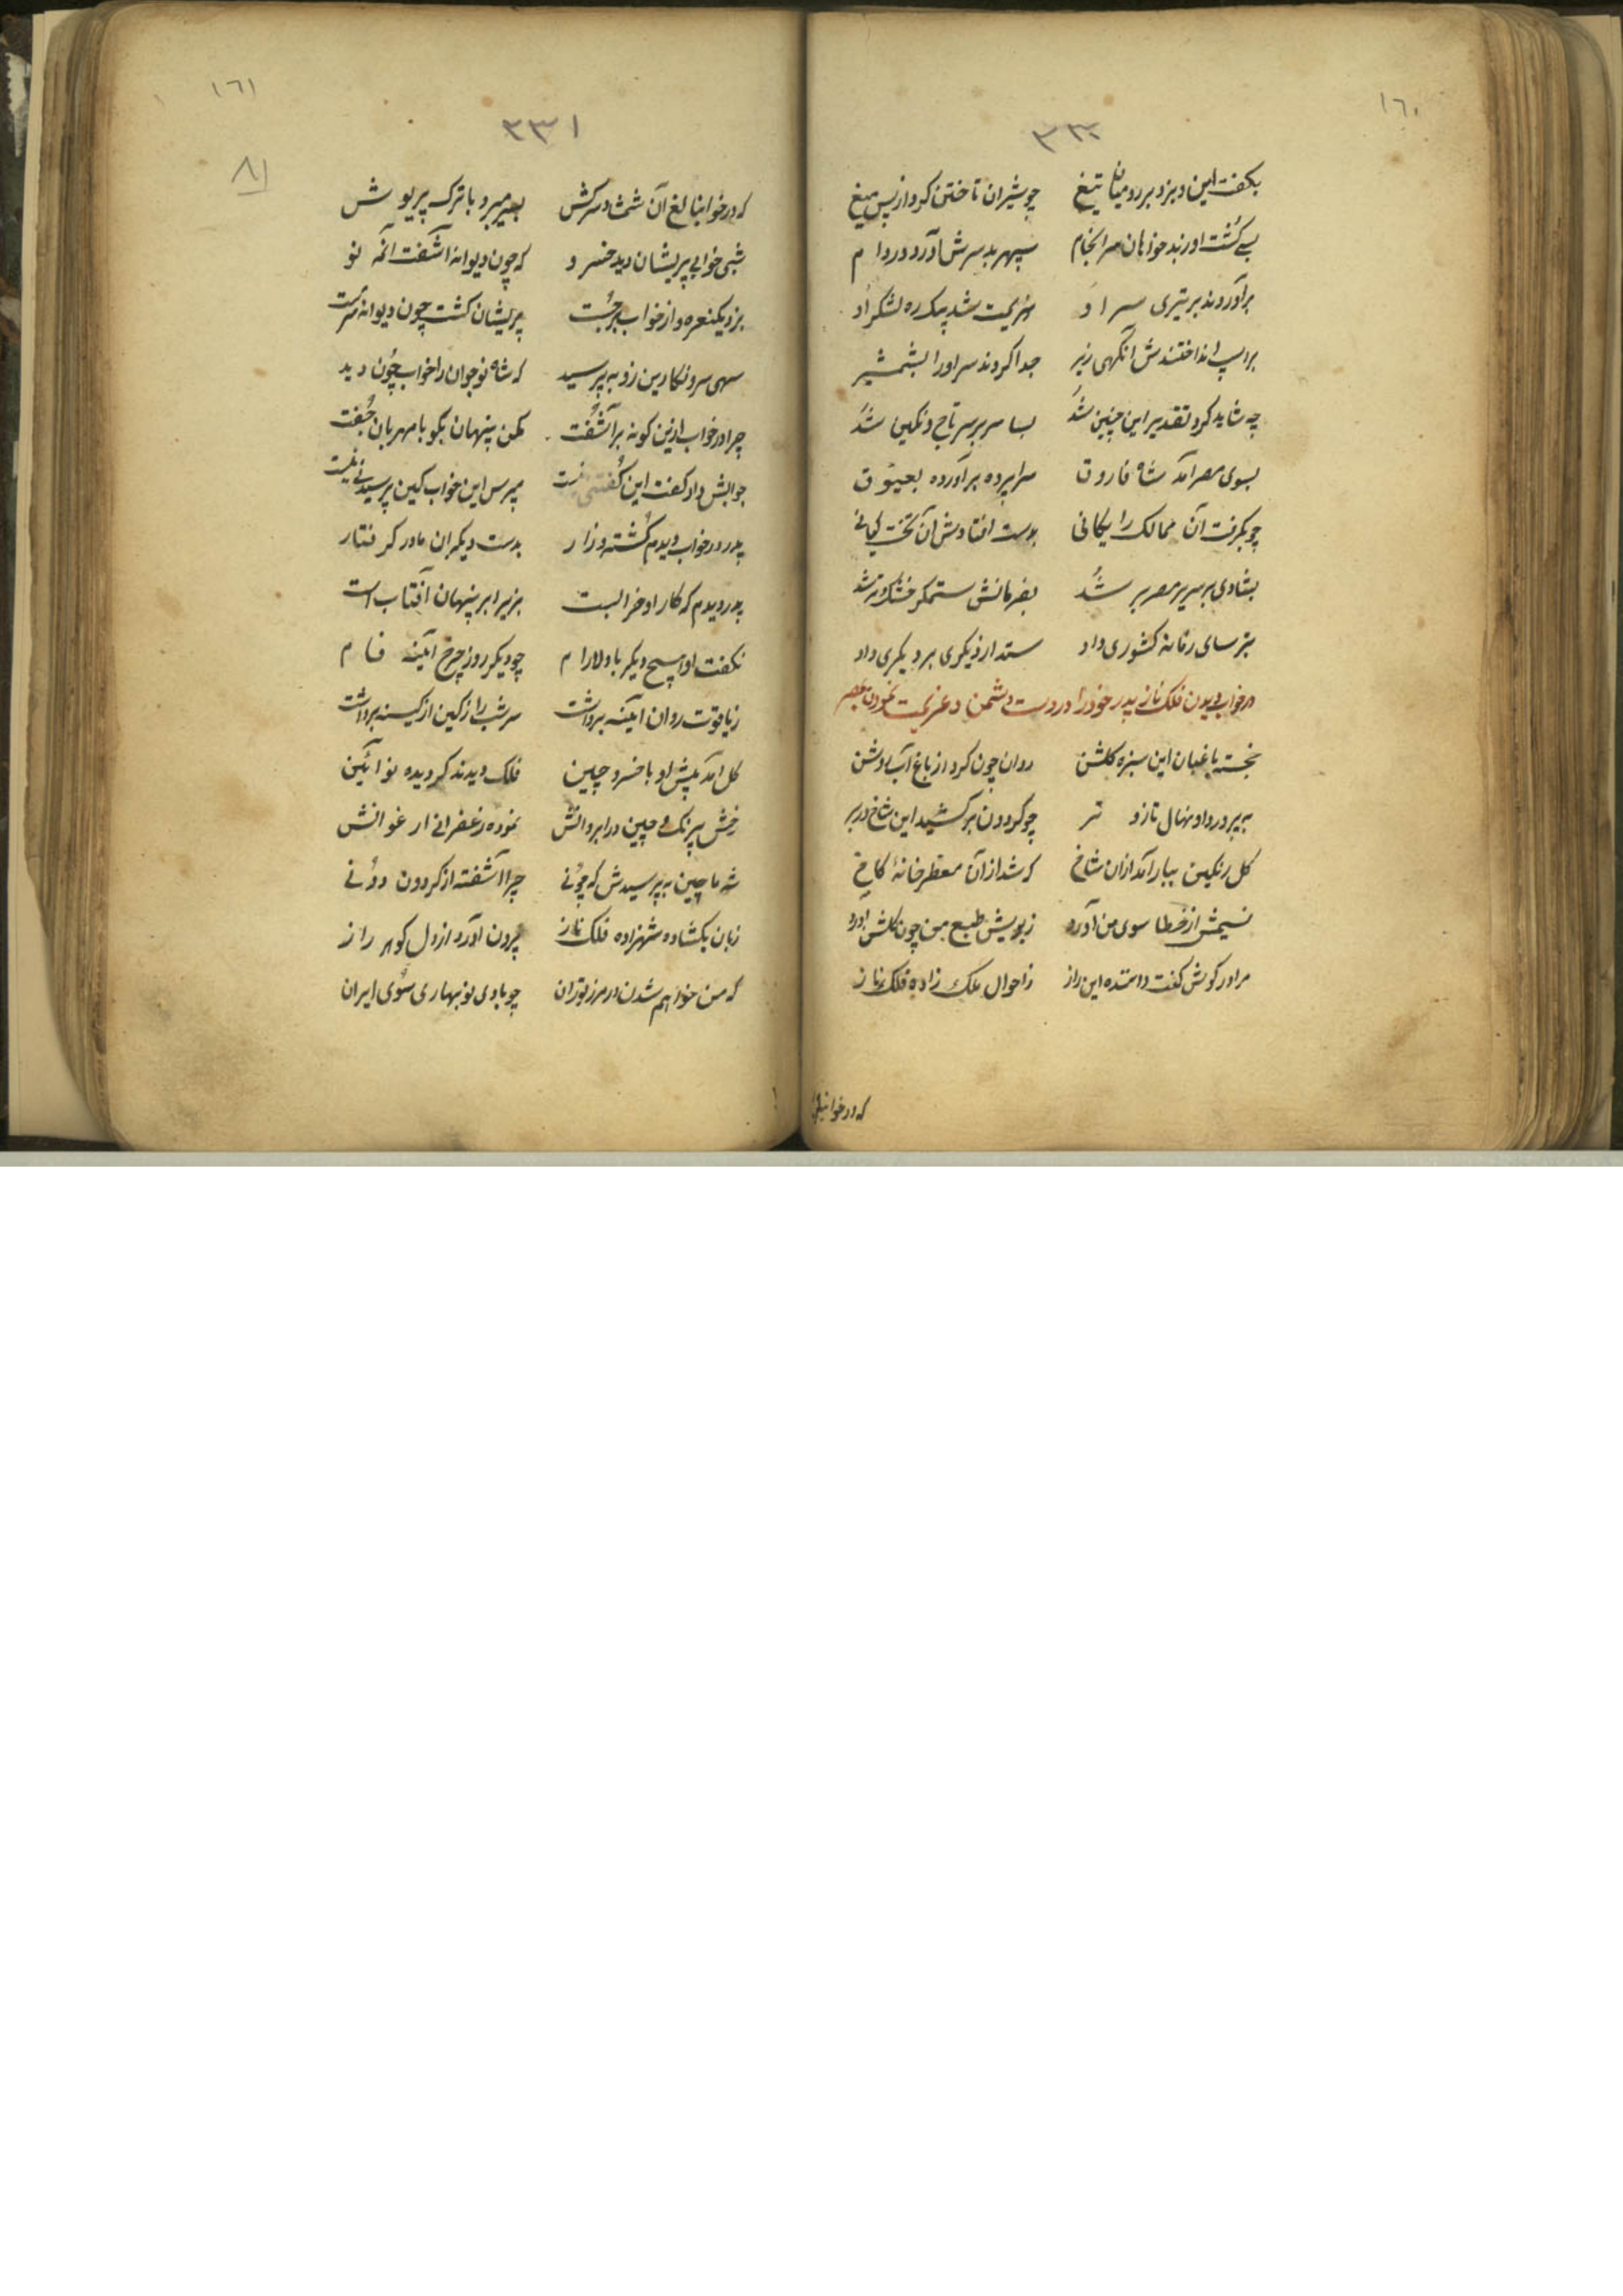 ١٦٠
٣٣٠
بکفت این و بزد بر رومیان تیغ چو شیران تاختن کرد از پس میغ
بسی کشت او ز بدخواهان سرانجام سپهر بد سرش آورد در دام
برآوردند بر تیری سر او هزیمت شد یک ره لشکر او
بر اسپ انداختندش آنگهی زیر جدا کردند سر او را بشمشیر
چه شاید کرد تقدیر این چنین شد بسا سر بر سر تاج و نکین شد
بسوی مصر آمد شاه فاروق سراپرده برآورده بعیوق
چو بکرفت آن ممالک رایکانی بدست افتادش آن تخت کیانی
بشادی بر سریر مصر بر شد بفرمانش ستمکر خشک و تر شد
بترسای زمانه کشوری داد ستد از دیکری بر دیکری داد
در خواب دیدن فلک ناز پدر خود را در دست دشمن و عزیمت نمودن بمصر
خجسته باغبان این سبزه کلشن روان چون کرد از باغ آب روشن
بپرورد او نهال تازه تر چو کردون برکشید این شاخ در بر
کل رنکین ببار آمد از ان شاخ که شد از آن معطر خانهٔ کاخ
نسیمش از خطا سوی من آورد ز بویش طبع من چون کلشن آورد
مرا در کوش کفت داننده این راز ز احوال ملک زاده فلک ناز
که در خوابناغ
١٦١
٣٣١
٨١
که در خوابنالغ آن شمشاد سرکش بسر میبرد با ترک پریوش
شبی خوابی پریشان دید خسرو که چون دیوانه آشفت آنمه نو
بزد یکنعره و از خواب برجست پریشان کشت چون دیوانه مست
سهی سرو نکارین زو بپرسید که شاه نوجوان را خواب چون دید
چرا در خواب ازین کونه برآشفت مکن پنهان بکو با مهربان جفت
جوابش داد کفت این کفتنی نیست مپرس این خواب کین پرسیدنی نیست
پدر در خواب دیدم کشته و زار بدست دیکران مادر کرفتار
پدر دیدم که کار او خرابست بزیر ابر پنهان آفتاب است
نکفت او هیچ دیکر با دلارام چو دیکر روز چرخ آئینه فام
ز یاقوت روان آئینه برداشت سر شب را ز کین از کیسه برداشت
کل آمد پیش او با خسرو چین فلک دیدند کردیده نو آئین
رخش پیرنک و چین در ابروانش نموده زعفرانی ارغوانش
شه ماچین بپرسیدش که چونی چرا آشفته از کردون دونی
زبان بکشاد شهزاده فلک ناز برون آورد از دل کوهر راز
که من خواهم شدن در مرز توران چو بادی نوبهاری سوی ایران